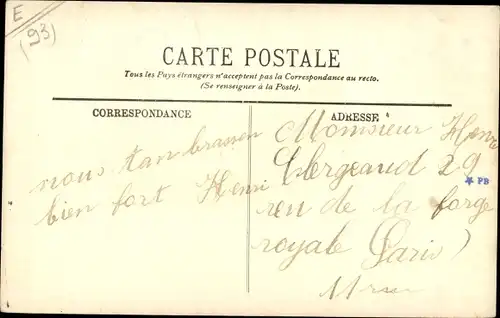 E
(93)
CARTE POSTALE
Tous les Pays étrangers n'acceptent pas la Correspondance au recto.
(Se renseigner à la Poste).
CORRESPONDANCE
ADRESSE
nous tan brassen
bien fort Henri
Monsieur Henri
Clergeaud 29
PB
ren de la forge
royale (Paris)